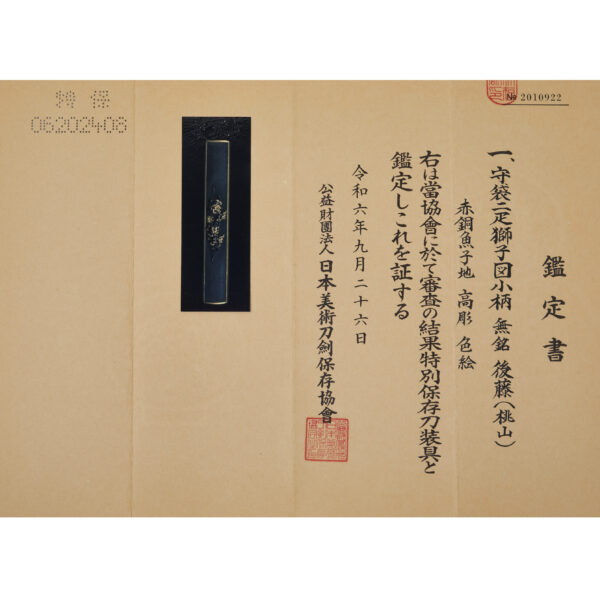 鑑定書
№ 2010922
一、守袋二疋獅子図小柄 無銘 後藤(桃山)
赤銅魚子地 高彫 色絵
右は當協會に於て審査の結果特別保存刀装具と
鑑定しこれを証する
令和六年九月二十六日
公益財團法人 日本美術刀劍保存協會
特保
06202408